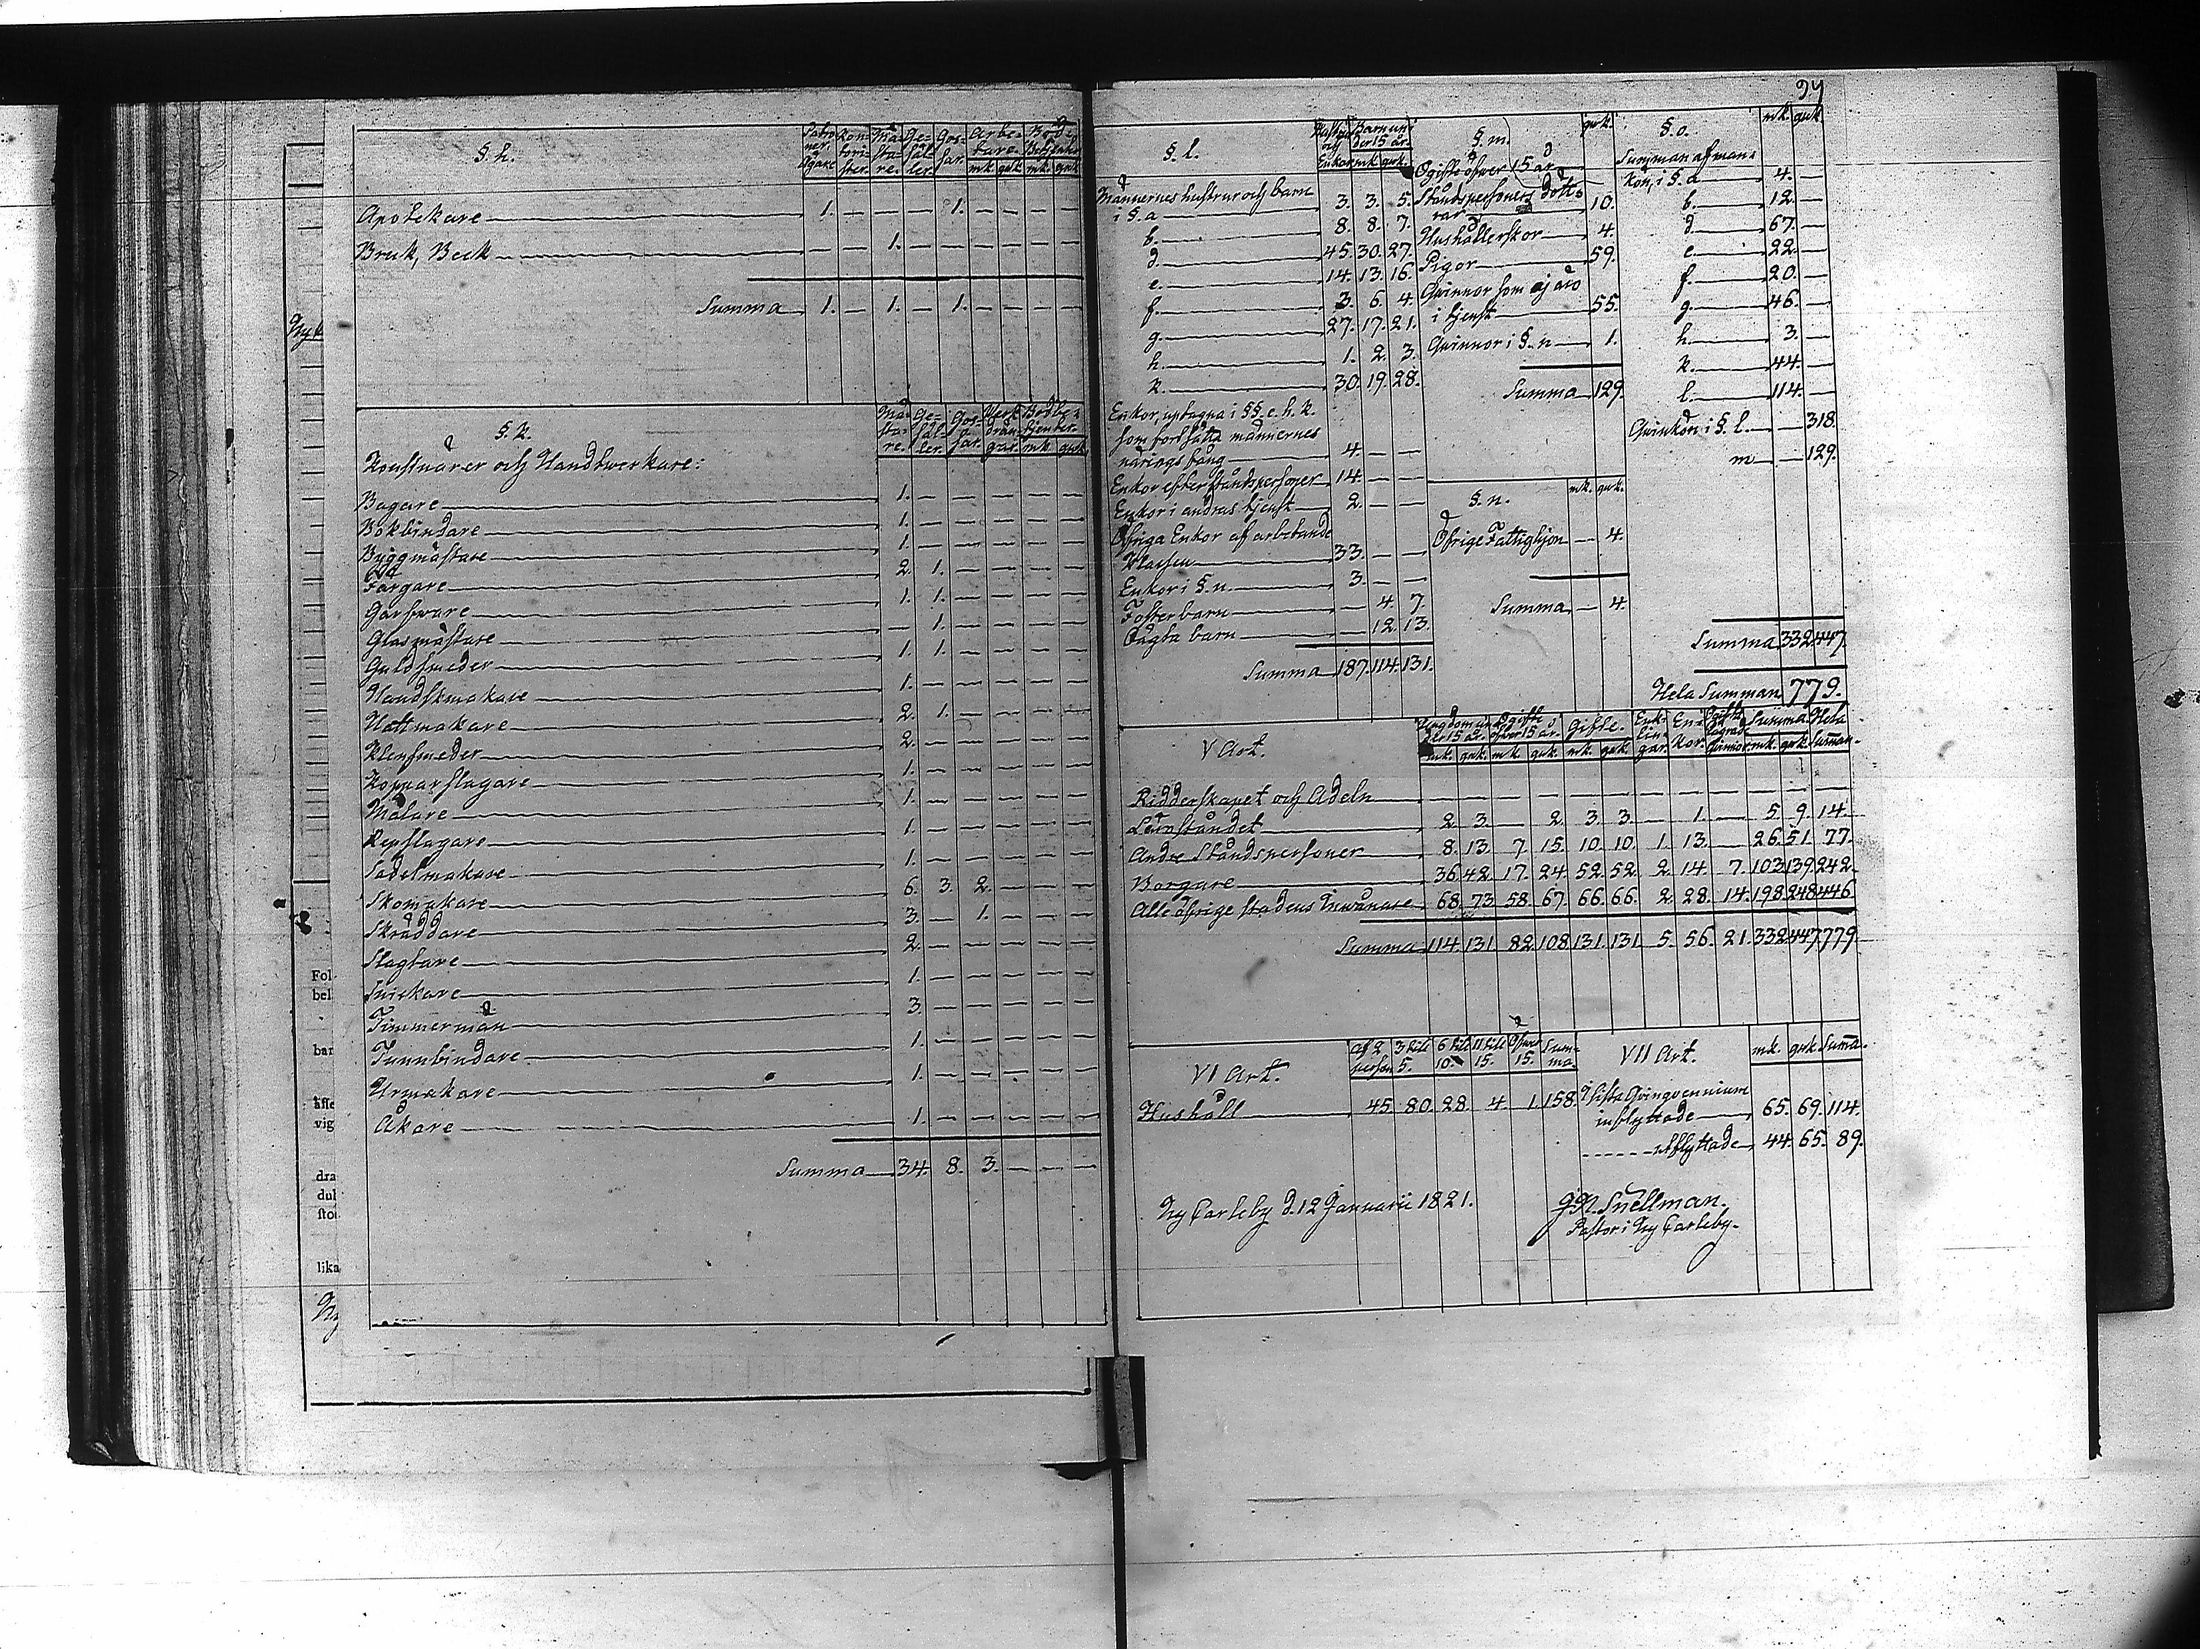 §. h.
Patroner. Ägare
Kontorister.
Mästare.
Gesäller.
Gossar.
Arbetare. mk. qvk.
Apotekare — 1. — — — 1. — — — —
Bruk, Beck — — — 1. — — — — — —
Summa 1. — 1. — 1. — — — —
§. k.
Mästare. Gesäller. Gossar. mk. qvk.
Konstnärer och Handtwerkare:
Bagare — 1. — — — — —
Bokbindare — 1. — — — — —
Byggmästare — 1. — — — — —
Färgare — 2. 1. — — — —
Garfware — 1. 1. — — — —
Glasmästare — — 1. — — — —
Guldsmeder — 1. 1. — — — —
Handskmakare — 1. — — — — —
Hattmakare — 2. 1. — — — —
Klensmeder — 2. — — — — —
Kopparslagare — 1. — — — — —
Målare — 1. — — — — —
Repslagare — 1. — — — — —
Sadelmakare — 1. — — — — —
Skomakare — 6. 3. 2. — — —
Skräddare — 3. — 1. — — —
Slagtare — 2. — — — — —
Snickare — 1. — — — — —
Timmerman — 3. — — — — —
Tunnbindare — 1. — — — — —
Urmakare — 1. — — — — —
Åkare — 1. — — — — —
Summa 34. 8. 3. — — —
Fol
bel
bar
vig
dra
dul
stor
lika
Ny
§. l.
Hustrur och Enkor
Barn under 15 år. mk. qvk.
Männernes hustrur och barn
i §. a — 3. 3. 5.
b. — 8. 8. 7.
d. — 45. 30. 27.
e. — 14. 13. 16.
f. — 3. 6. 4.
g. — 27. 17. 21.
h. — 1. 2. 3.
k. — 30. 19. 28.
Enkor, uptagna i §§. e. h. k.
som fortsätta männernes
näringsfång — 4. — —
Enkor efter ståndspersoner 14. — —
Enkor i andras tjenst — 2. — —
Öfriga Enkor af arbetande
Klassen — 33. — —
Enkor i §. n — 3. — —
Fosterbarn — — 4. 7.
Oägta barn — — 12. 13.
Summa 187. 114. 131.
§. m.
qvk.
Ogifte öfwer 15 år
Ståndspersoners dött-
rar — 10.
Hushållerskor — 4.
Pigor — 59.
Qwinnor som ej äro
i tjenst — 55.
Qwinnor i §. n — 1.
Summa 129.
§. n.
mk. qvk.
Öfrige Fattighjon — 4.
Summa — 4.
§. o.
mk. qvk.
Summan af man-
kön, i §. a — 4. —
b. — 12. —
d. — 67. —
e. — 22. —
f. — 20. —
g. — 46. —
h. — 3. —
k. — 44. —
l. — 114. —
Qwinkön i §. l. — — 318.
m — — 129.
Summa 332 447.
Hela Summan 779.
V Art.
Ungdom under 15 år. mk. qvk.
Ogifte öfver 15 år. mk. qvk.
Gifte. mk. qvk.
Enklingar.
Enkor.
Summa mk. qvk.
Hela Summan.
Ridderskapet och Adeln — — — — — — — — — — — —
Lärostandet — 2. 3. — 2. 3. 3. — 1. — 5. 9. 14.
Andre Ståndspersoner — 8. 13. 7. 15. 10. 10. 1. 13. — 26. 51. 77.
Borgare — 36. 42. 17. 24. 52. 52. 2. 14. 7. 103. 139. 242.
Alle öfrige stadens Inwånare 68. 73. 58. 67. 66. 66. 2. 28. 14. 198. 248 446
Summa 114. 131. 82. 108. 131. 131. 5. 56. 21. 332 447 779.
VI Art.
af 2 person
3 till 5.
6 till 10.
11 till 15.
öfwer 15.
Summa.
Hushåll — 45. 80. 28. 4. 1. 158.
VII Art.
mk. qvk. Summa.
I sista Qvinqvennium
inflyttade — 65. 69. 114.
utflyttade 44. 65. 89.
Ny Carleby d. 12 Januarii 1821.
Snellman.
Pastor i Ny Carleby.